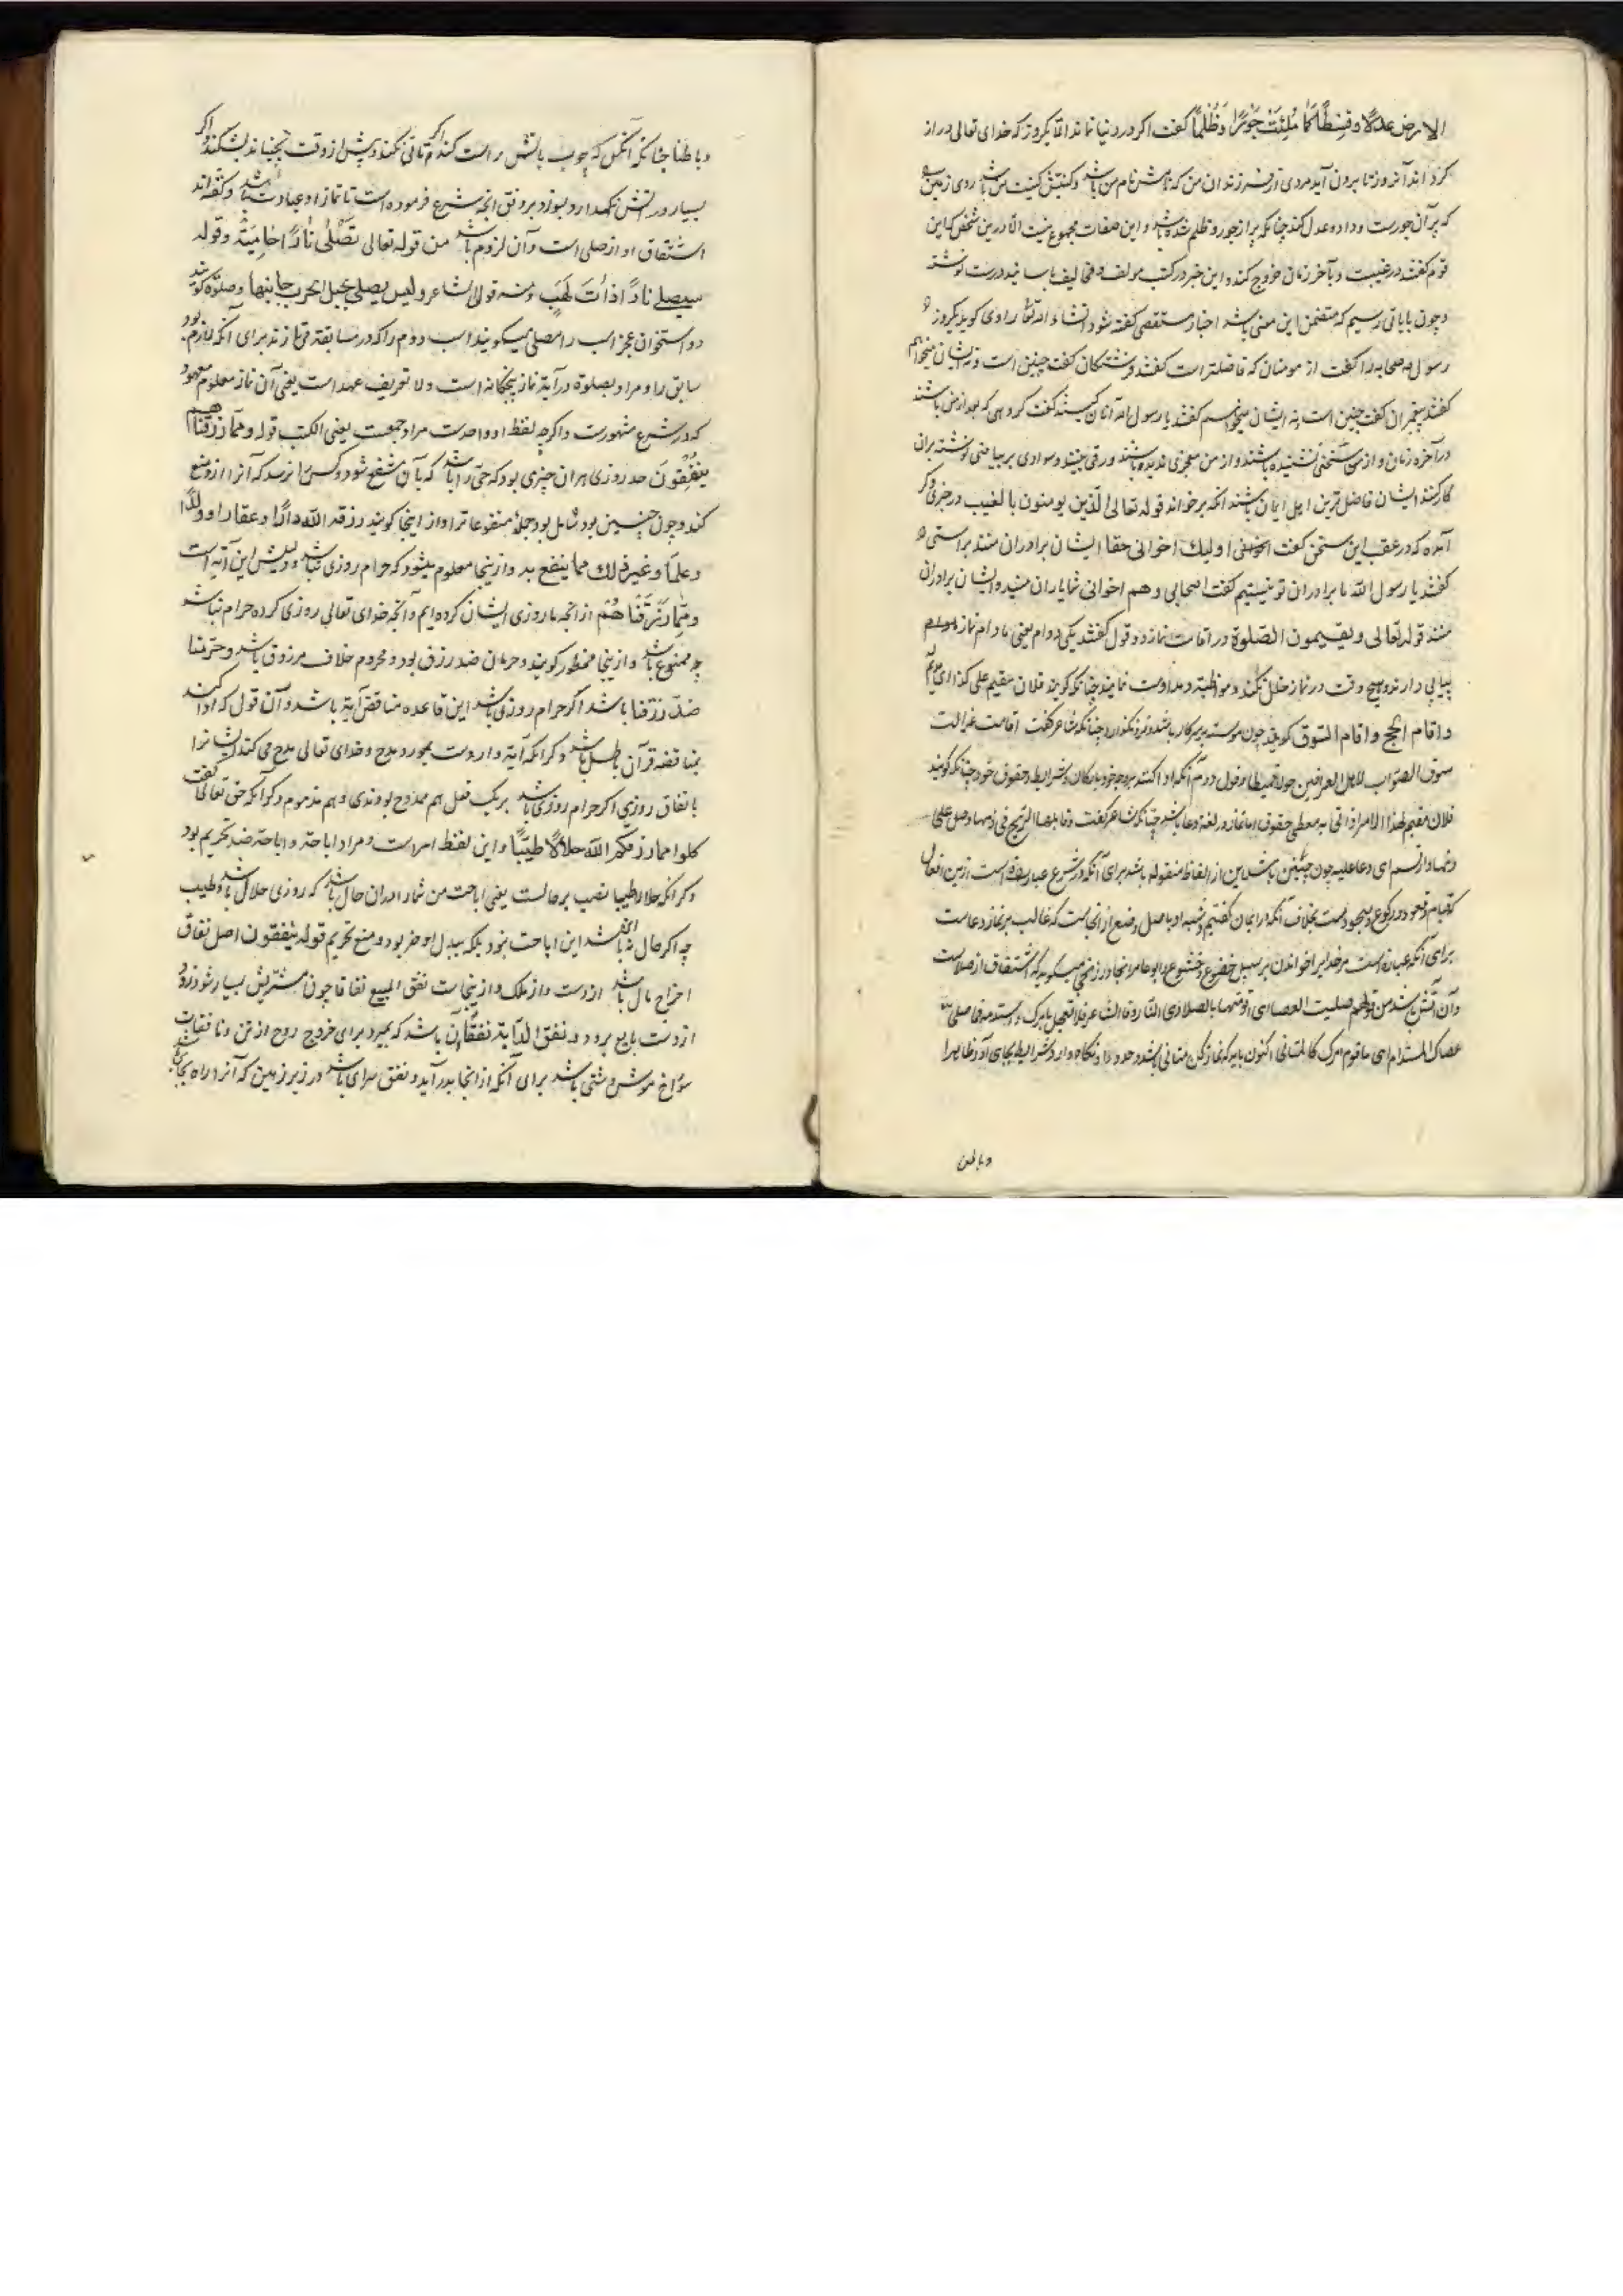 الارض عدلا و قسطا كما ملئت جورا و ظلما كفت اكر در دنيا نماند الا يكروز كه خداى تعالى دراز
كرداند آنروز تا برون آيد مردى از فرزندان من كه نامش نام من باشد و كنيتش كنيت من باشد روى زمين
كه پر آن جورست و داد و عدل كند چنانكه پر از جور و ظلم شده باشد و اين صفات مجموع نيست الا درين شخص كه اين
قوم كفتند در غيبت و بآخر زمان خروج كند و اين خبر در كتب مولف و مخالف باسانيد درست نوشته
و چون باياتى رسيم كه متضمن اين معنى باشد اخبار مستقصى كفته شود انشاء الله تعالى راوى كويد يكروز
رسول صحابه را كفت از مومنان كه فاضلتر است كفتند فرشتكان كفت چنين است و نه ايشان ميخواهم
كفتند پيغمبران كفت چنين است نه ايشان ميخواهم كفتند يا رسول الله آنان كيستند كفت كروهى كه بعد از من باشند
در آخر زمان و از من سخنى نشنيده باشند و از من معجزى نديده باشند ورقى بينند و سوادى بر بياضى نوشته بران
كار كنند ايشان فاضل ترين اهل ايمان باشند آنكه برخواند قوله تعالى الذين يومنون بالغيب در خبرى دكر
آمده كه در عقب اين سخن كفت اوليك اخوانى حقا ايشان برادران منند براستى
كفتند يا رسول الله ما برادران تو نيستيم كفت اصحابى و هم اخوانى شما ياران منيد و ايشان برادران
منند قوله تعالى و يقيمون الصلوة در اقامت نماز دو قول كفتند يكى دوام يعنى مادام نماز
پياپى دارند و هيچ وقت در نماز خلل نكنند و مواظبت و مداومت نمايند چنانكه كويند فلان مقيم على كذا اى
و اقام الحج و اقام السوق كويند چون پيوسته بر سر كار باشد و فرو نكذارد چنانكه شاعر كفت اقامت غزالت
سوق الضراب لاهل العراقين حولا قميطا و قول دوم آنكه ادا كنند بوجه خود باركان و شرايط و حقوق خود چنانكه كويند
فلان مقيم لهذا الامر اذا اتى به معطى حقوقه اما نماز در لغة دعا باشد چنانكه شاعر كفت و قابلها الريح فى دنها و صلى على
دنها و ارتسم اى دعا عليه چون چنين باشد اين از الفاظ منقوله باشد براى آنكه در شرع عبارت است ازين افعال
كه قيام و قعود و ركوع و سجود است بخلاف آنكه در ايمان كفتيم و شبه او باصل وضع از انجاست كه غالب بر نماز دعاست
براى آنكه عبادت است مر خدايرا خواندن بر سبيل خضوع و خشوع و ابو حامد الخارزنجى ميكويد كه اشتقاق از صلاست
و آن آتش باشد من قولهم صليت العصا اى قومتها بالصلا اى النار و قال الشاعر فلا تعجل بامرك و استدمه فما صلى
عصاك كالمستديم اى ما قوم امرك كالمتانى اكنون بايد كه نماز كن متانى باشد و حدود او نكاه دارد و شرايط بجاى آورد ظاهرا
و باطن
و باطنا چنانكه آنكس كه چوب باتش راست كند اكر تانى نكند و پيش از وقت بجنباند بشكند و اكر
بسيار در آتش نكهدارد بسوزد بر وفق انچه شرع فرموده است تا نماز او عبادت باشد و كفته اند
اشتقاق او از صلى است و آن لزوم باشد من قوله تعالى تصلى نارا حامية و قوله
سيصلى نارا ذات لهب و منه قول الشاعر و ليس يصلى بجبل الحرب جانيها و صلوة كويند
دو استخوان عجز اسب را مصلى ميكويند اسب دوم را كه در مسابقت تازند براى آنكه ملازم بود
سابق را و مراد بصلوة در آية نماز پنجكانه است و لام تعريف عهد است يعنى آن نماز معلوم معهود
كه در شرع مشهورست و اكرچه لفظ او واحدست مراد جمعست يعنى الكتب قوله و مما رزقناهم
ينفقون حد روزى هر آن چيزى بود كه حى را باشد كه بآن منتفع شود و كسى را نرسد كه آنرا ازو منع
كند و چون چنين بود شامل بود جمله منتفعاترا و از اينجا كويند رزقه الله دارا و عقارا و ولدا
و علما و غير ذلك مما ينتفع به و ازينجا معلوم ميشود كه حرام روزى نباشد و دليلش اين آيه است
و مما رزقناهم از انچه ما روزى ايشان كرده ايم و آنچه خداى تعالى روزى كرده حرام نباشد
چه ممنوع باشد و ازينجا محظور كويند و حرمان ضد رزق بود و محروم خلاف مرزوق باشد و حرمنا
ضد رزقنا باشد اكر حرام روزى باشد اين قاعده مناقض آية باشد و آن قول كه ادا كند
بمناقضه قرآن باطل باشد و دكر آنكه آية واردست بمورد مدح و خداى تعالى مدح مى كند ايشانرا
بانفاق روزى اكر حرام روزى باشد بر يك فعل هم ممدوح بودندى و هم مذموم دكر آنكه حق تعالى كفت
كلوا مما رزقكم الله حلالا طيبا و اين لفظ امرست و مراد اباحت و اباحت ضد تحريم بود
دكر آنكه حلالا طيبا نصب بر حالست يعنى اباحت من شما را در آن حال باشد كه روزى حلال باشد و طيب
چه اكر حال نه اين باشد اين اباحت نبود بلكه ببدل او حظر بود و منع تحريم قوله ينفقون اصل نفاق
اخراج مال باشد از دست و از ملك و ازينجاست نفق المبيع نفاقا چون مشتريش بسيار شود زود
از دست بايع برود و نفق الدابة نفقا آن باشد كه بميرد براى خروج روح از تن و نافقات
سوراخ موش دشتى باشد براى آنكه از انجا بدر آيد و نفق سراى باشد در زير زمين كه آنرا راه بجاى